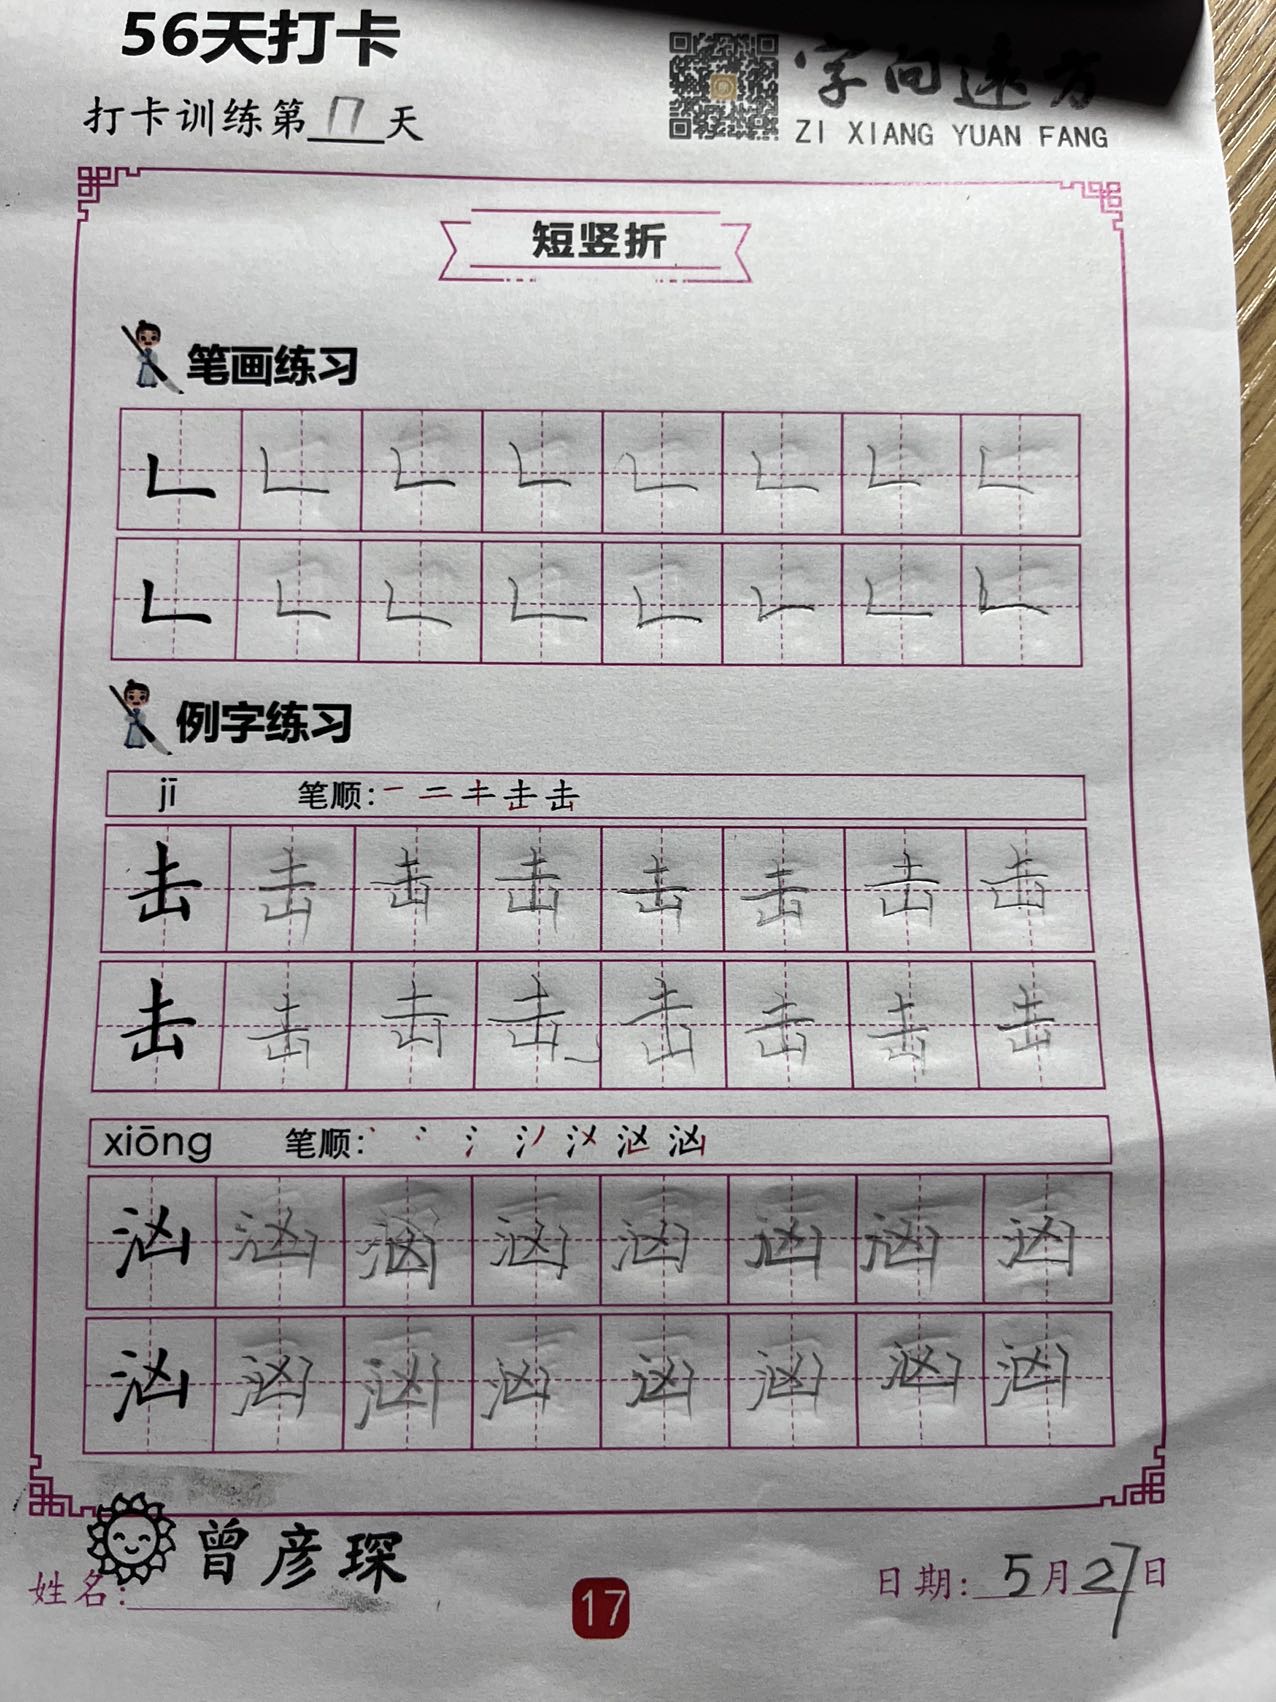 56天打卡
打卡训练第17天
字向远方
ZI XIANG YUAN FANG
短竖折
笔画练习
𠃊 𠃊 𠃊 𠃊 𠃊 𠃊 𠃊 𠃊
𠃊 𠃊 𠃊 𠃊 𠃊 𠃊 𠃊 𠃊
例字练习
jī 笔顺:
击 击 击 击 击 击 击 击
击 击 击 击 击 击 击 击
xiōng 笔顺:
汹 汹 汹 汹 汹 汹 汹 汹
汹 汹 汹 汹 汹 汹 汹 汹
姓名: 曾彦琛
17
日期: 5月27日